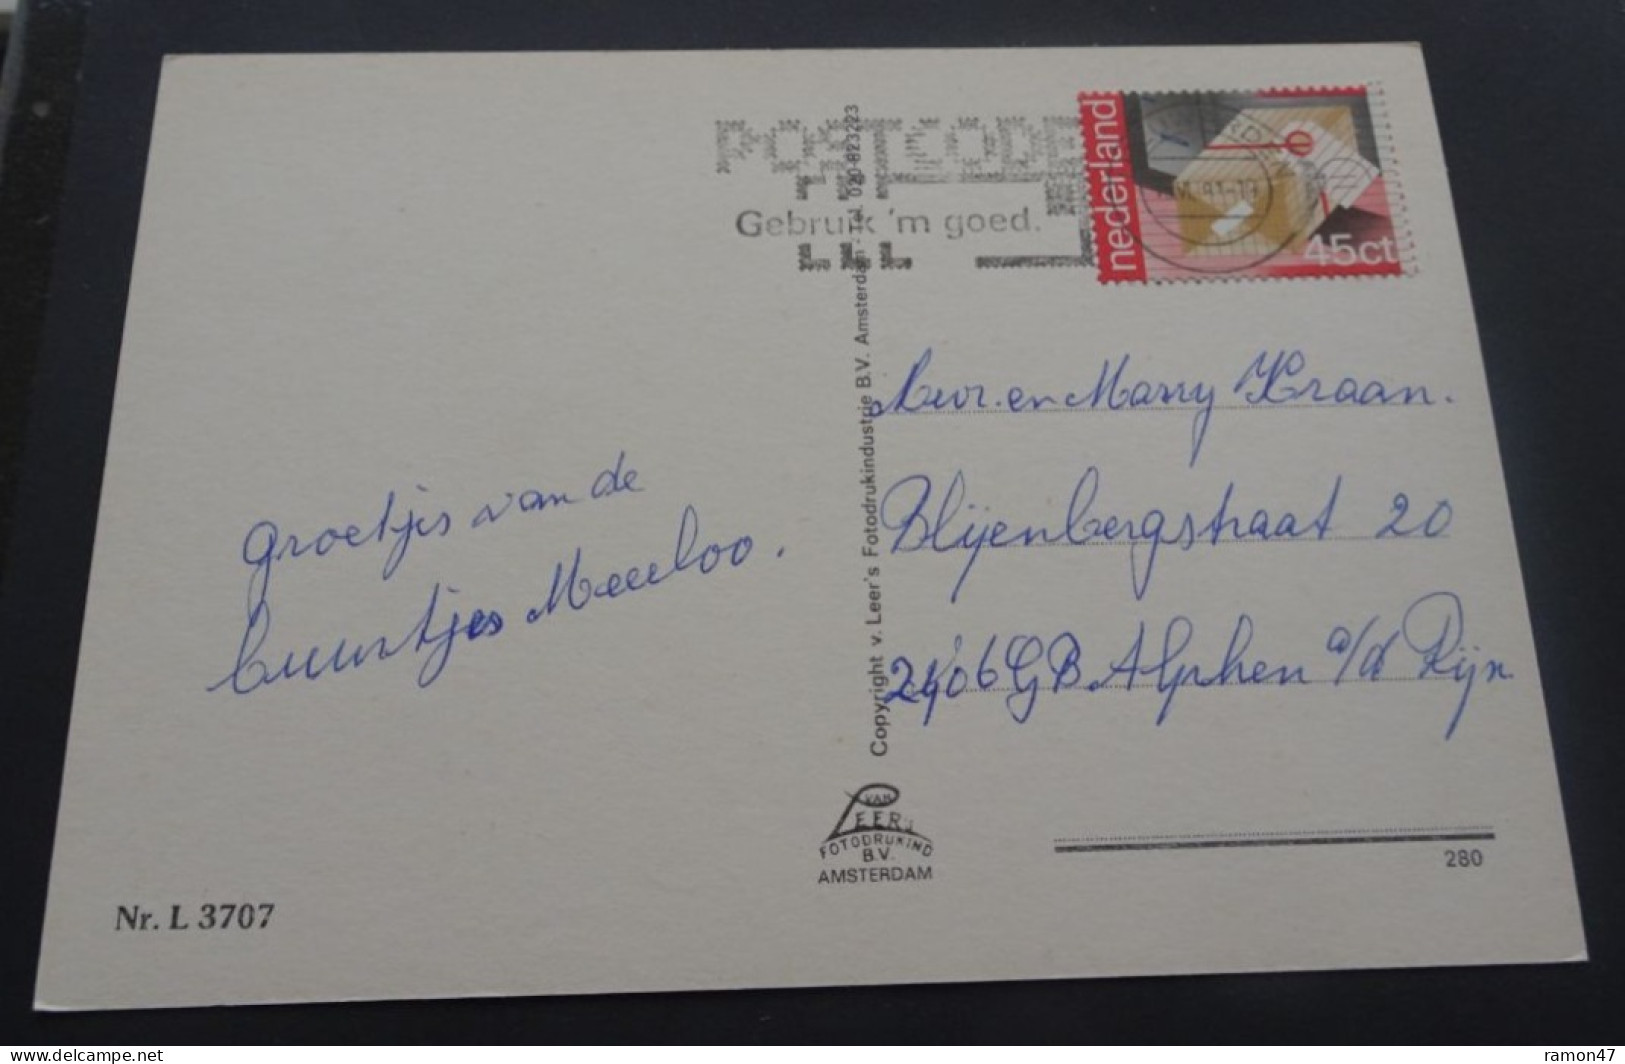 POSTCODE
Gebruik 'm goed.
nederland
45ct
Groetjes van de
buurtjes Meerloo.
Copyright v. Leer's Fotodrukindustrie B.V. Amsterdam - Tel. 020-823223
en Marry Kraan.
Blijenbergstraat 20
2406 GB Alphen a/d Rijn
VAN
LEER'S
FOTODRUKIND
B.V.
AMSTERDAM
280
Nr. L 3707
ramon47